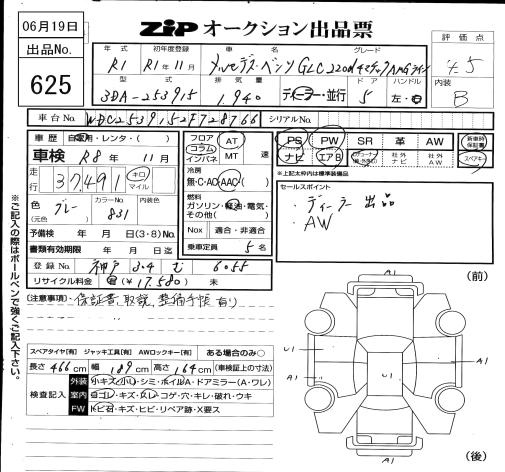 06月19日
ZIP オークション出品票
出品No.
625
評価点
4.5
内装
B
年式 初年度登録 車名 グレード
R1 R1年11月 メルセデス・ベンツ GLC220d 4マチック AMGライン
型式 排気量 ドア ハンドル
3DA-253915 1.940 ディーラー・並行 5 左・右
車台No. WDC2539152F728766 シリアルNo.
車歴 自家用・レンタ・( )
車検 R8年11月
走行 37,491 キロ マイル
色 (元色) グレー カラーNo. 831 内装色
予備検 年 月 日(3・8)No.
書類有効期限 年 月 日迄
登録No. 神戸 304 む 6055
リサイクル料金 (¥17,580) 未
フロア コラム インパネ AT MT 速
冷房 無・C・AC・AAC
燃料 ガソリン・軽油・電気・その他( )
Nox 適合・非適合
乗車定員 5名
PS PW SR 革 AW 新車時保証書
ナビ エアB 社外ナビ 社外AW スペアキー
※上記太枠内は標準装備
セールスポイント
・ディーラー出品
・AW
※ご記入の際はボールペンで強くご記入下さい。
(注意事項)・保証書、取説、整備手帳有り
スペアタイヤ[有] ジャッキ工具[有] AWロックキー[有] ある場合のみ○
長さ 466cm 幅 189cm 高さ 164cm (車検証上の寸法)
検査記入
外装 小キズ(小凹)・シミ・ホイルA・ドアミラー(A・ワレ)
室内 ヨゴレ・キズ・スレ・コゲ・穴・キレ・破れ・ウキ
FW トビ石・キズ・ヒビ・リペア跡・X要ス
(前)
A1
U1
U1
A1
A1
A1
(後)